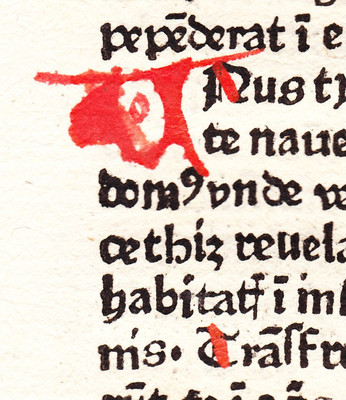 pepēderat ī e
UNus tr
te naue
domꝰ vnde ve
cethiz reuela
habitat ī inſ
nis. Trāſfre